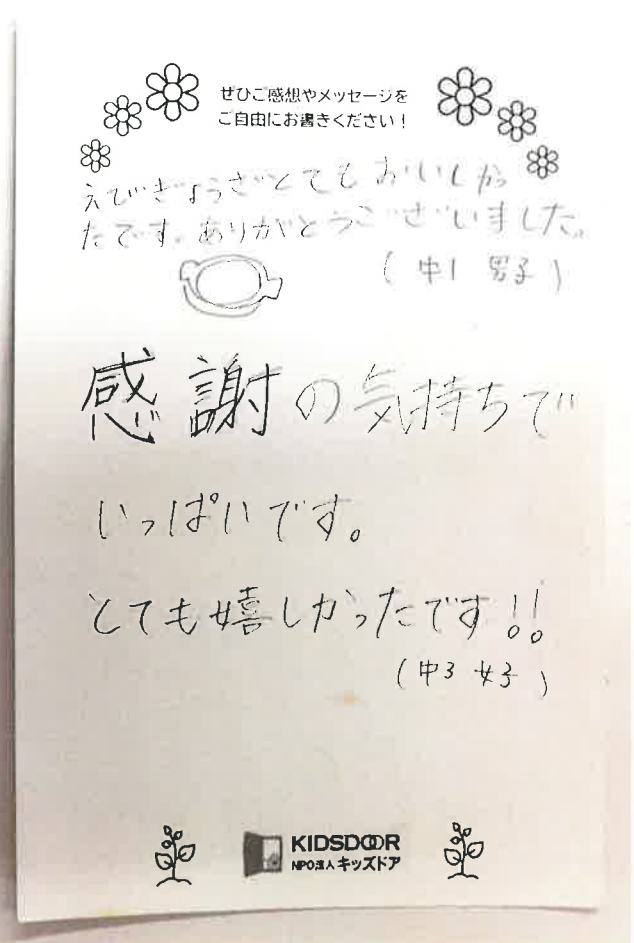 ぜひご感想やメッセージを
ご自由にお書きください！
えびぎょうざとてもおいしかっ
たです。ありがとうございました。
(中1 男子)
感謝の気持ちで
いっぱいです。
とても嬉しかったです!!
(中3 女子)
KIDSDOOR
NPO法人キッズドア